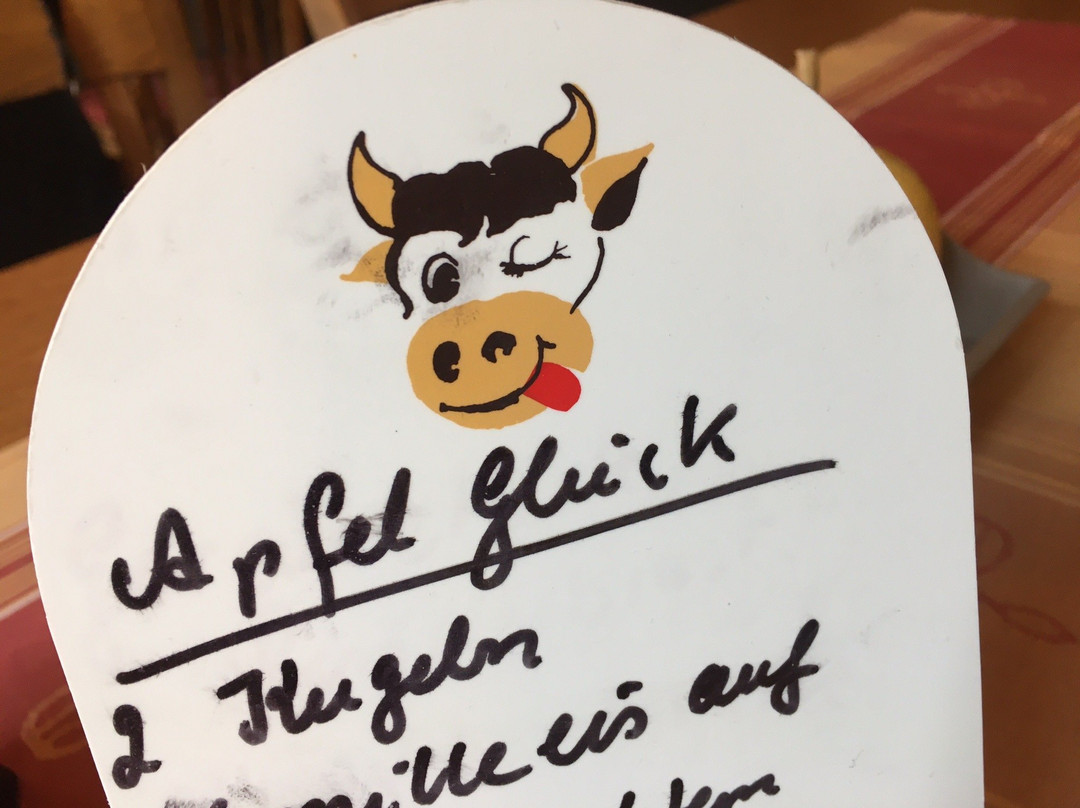 Apfel Glück
2 Kugeln
eis auf